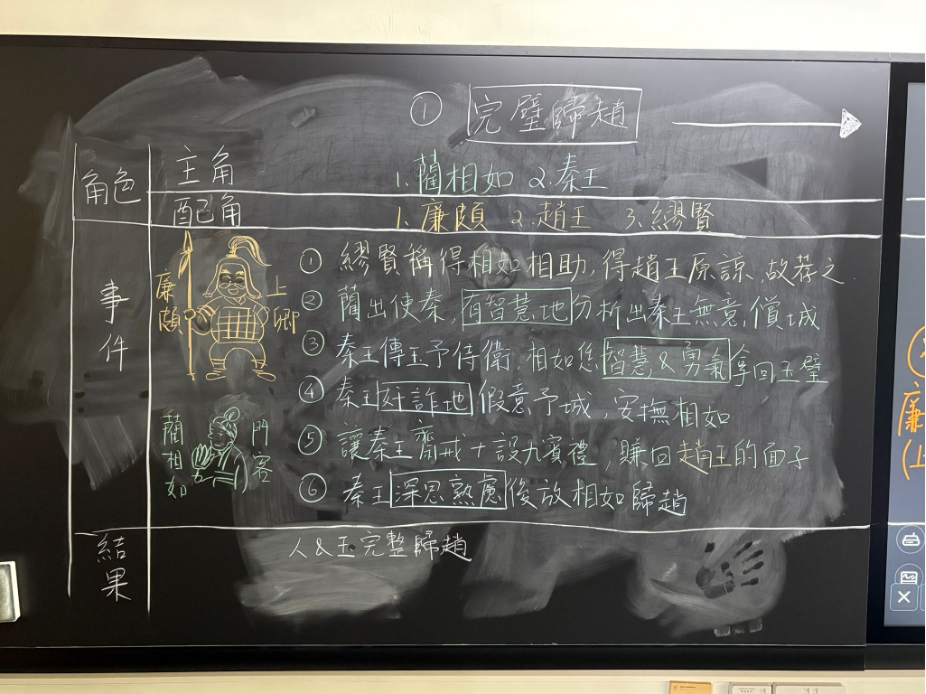 ① 完璧歸趙
角色
主角
1. 藺相如 2. 秦王
配角
1. 廉頗 2. 趙王 3. 繆賢
事件
廉頗
上卿
藺相如
門客
① 繆賢稱得相如相助, 得趙王原諒, 故荐之.
② 藺出使秦, 有智慧地分析出秦王無意償城
③ 秦王傳玉予侍衛, 相如您智慧&勇氣拿回玉璧
④ 秦王奸詐地假意予城, 安撫相如
⑤ 讓秦王齋戒+設九賓禮, 賺回趙王的面子
⑥ 秦王深思熟慮後放相如歸趙
結果
人&玉完整歸趙
廉
(上